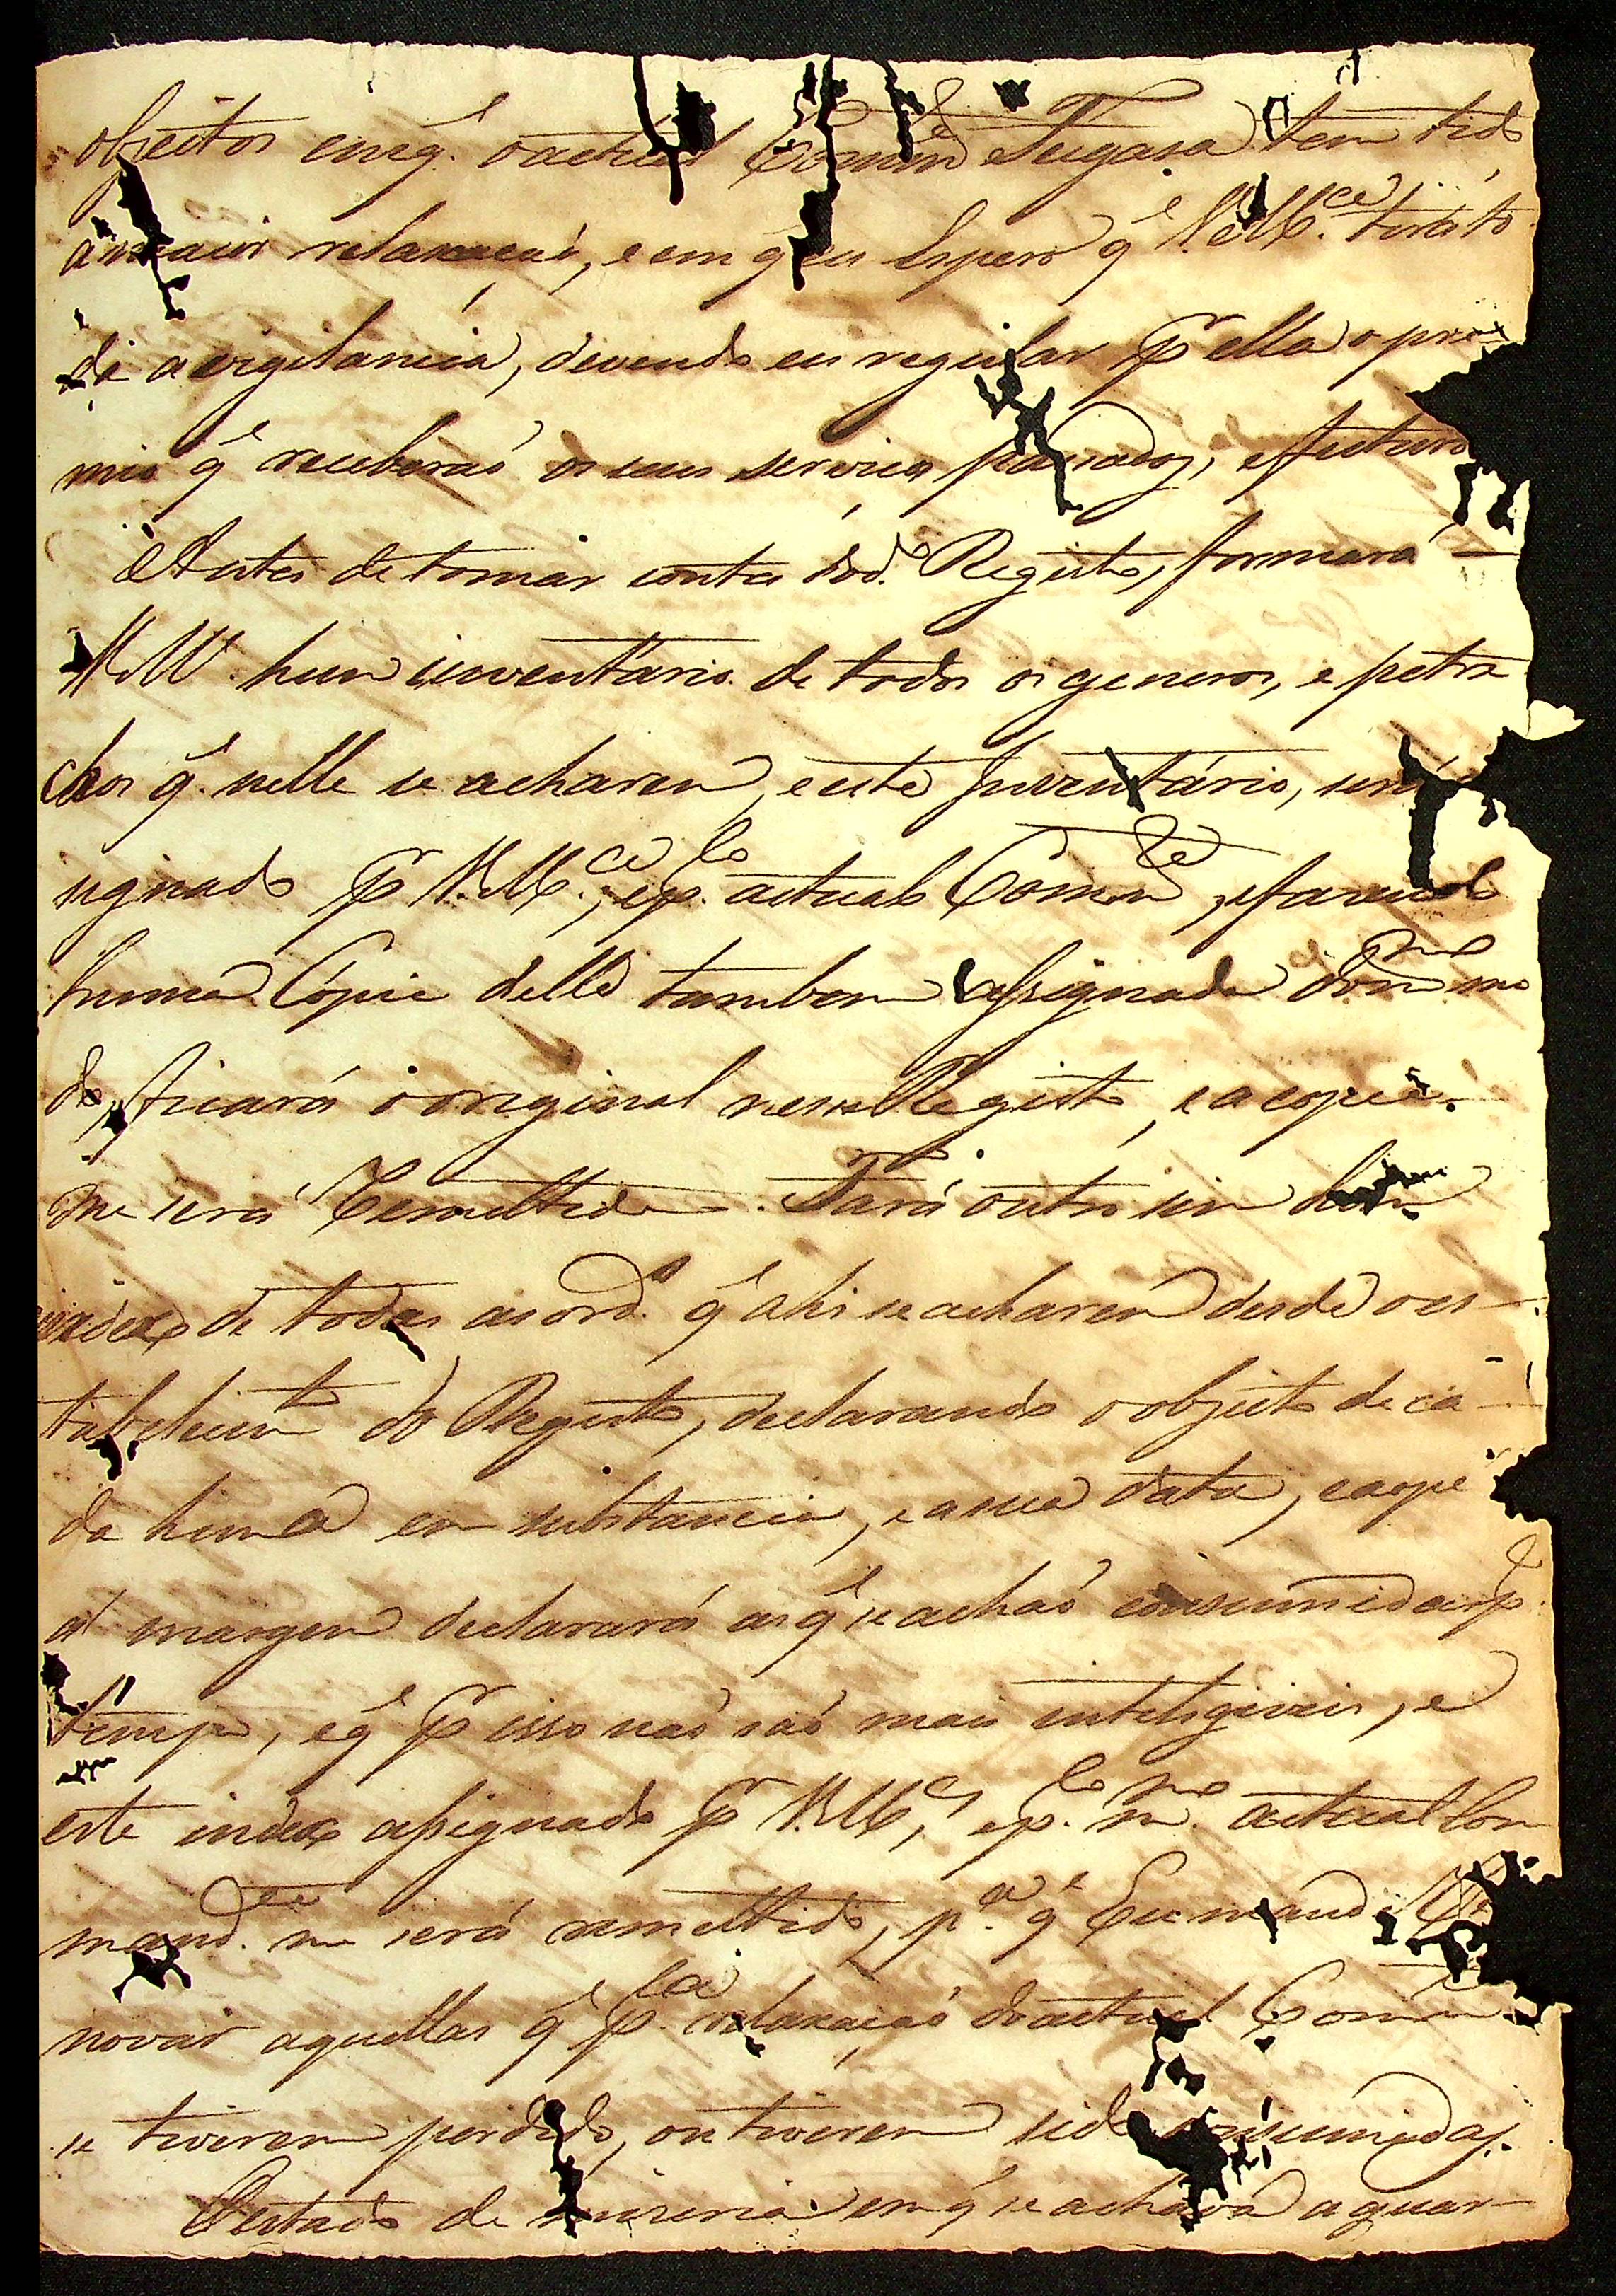 objectos em q̃. o actual Comm.e Fugasa tem tido
a maior relaxaçaõ, e em q̃ eu espero q̃ V.M.ce terá to
da a vigilancia, devendo eu regular p.r ella o pre
mio q̃ receberaõ os seus serviços passados, e futuro
Antes de tomar conta do d.o Registo, formará
V.M. hum inventário de todos os generos, e petre
chos q̃. nelle se acharem, e este Inventário, será
signado p.r V.M.ce, e p.lo actual Comm.de, e fazendo
huma Cópia delle tambem assignada do m.mo mo
do, ficará o original nesse Registo, e a copia
me será remettida. Fará outro sim hum
index de todas as ord.s q̃ ahi se acharem desde o es-
tabelecim.to do Registo, declarando o objecto de ca-
da huma em substancia, e a sua data, e ao pé
á margem declarará as q̃ se achaõ consumidas p.lo
tempo, e q̃ p.r isso naõ saõ mais inteligiveis, e
este index assignado p.r V.M.ce, e p.lo m.mo actual Com
mand.te me será remettido, p.a q̃ Eu mande Re
novar aquellas q̃ p.la relaxaçaõ do actual Comm.
se tiverem perdido, ou tiverem sido consumidas.
O estado de miseria em q̃ se achava a guar-